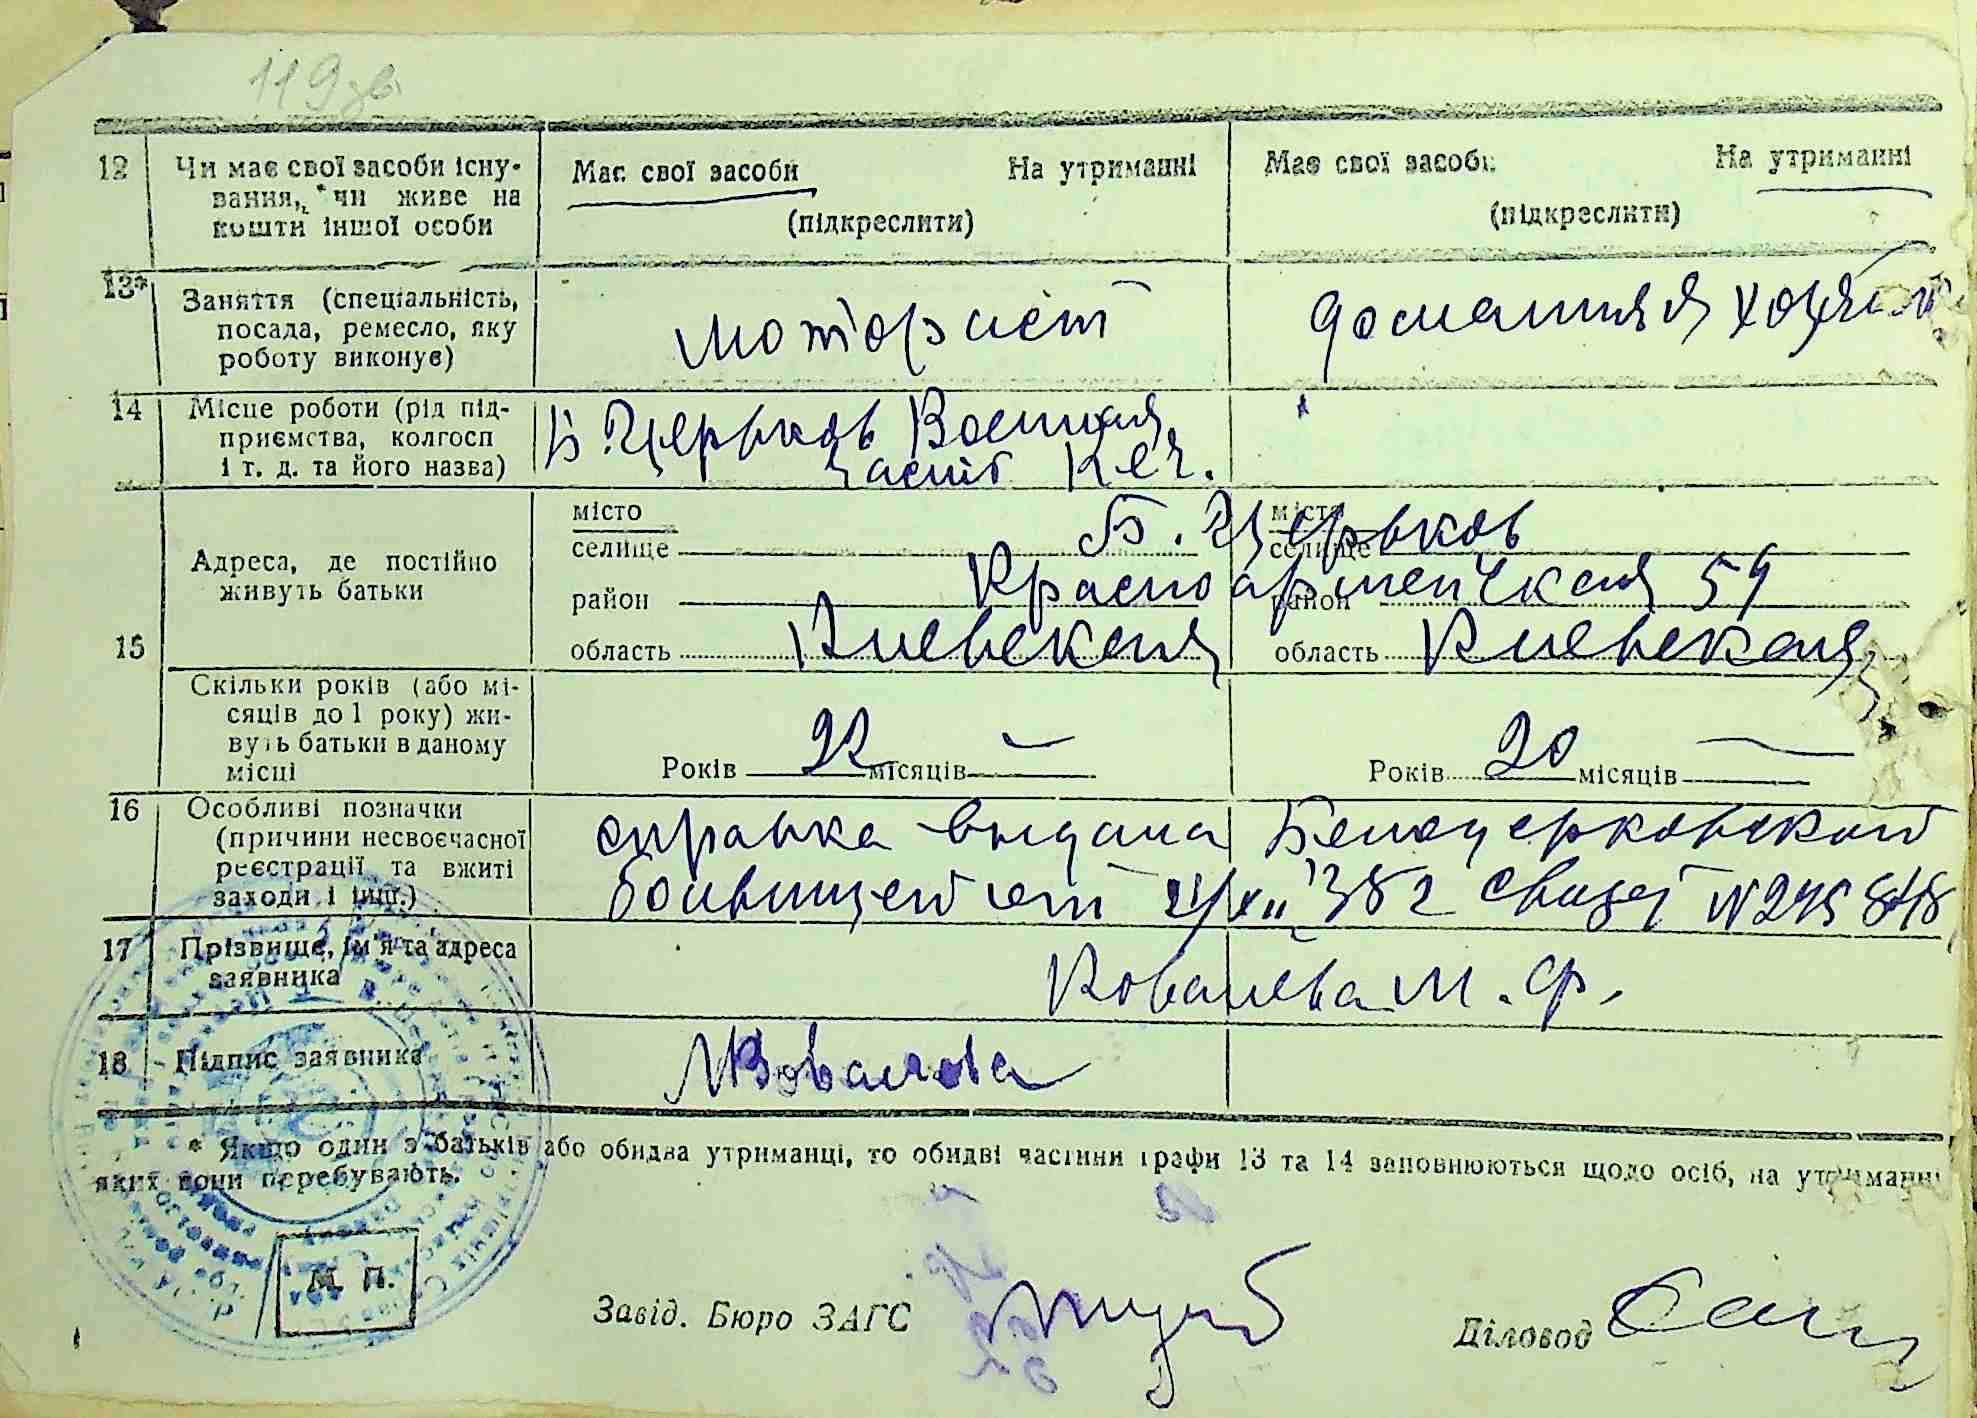 119зв
12 Чи має свої засоби існу-
вання, чи живе на
кошти іншої особи
Має свої засоби На утриманні
(підкреслити)
Має свої засоби На утриманні
(підкреслити)
13* Заняття (спеціальність,
посада, ремесло, яку
роботу виконує)
моторист
домашняя хозяйка
14 Місце роботи (рід під-
приємства, колгосп
і т. д. та його назва)
Б. Церьков Военная
часть КЕЧ.
15
Адреса, де постійно
живуть батьки
місто
селище
район
область Киевская
місто
селище
район
область Киевская
Б. Церьков
Красноармейская 59
Скільки років (або мі-
сяців до 1 року) жи-
вуть батьки в даному
місці
Років 22 місяців —
Років 20 місяців —
16 Особливі позначки
(причини несвоєчасної
реєстрації та вжиті
заходи і інш.)
справка выдана Белоцерковской
больницей от XII 2 свидет N 245848
17 Прізвище, ім'я та адреса
заявника
Ковалёва М. Ф.
18 Підпис заявника
МКовалева
* Якщо один з батьків або обидва утриманці, то обидві частини графи 13 та 14 заповнюються щодо осіб, на утриманні
яких вони перебувають.
М. П.
Завід. Бюро ЗАГС
Діловод